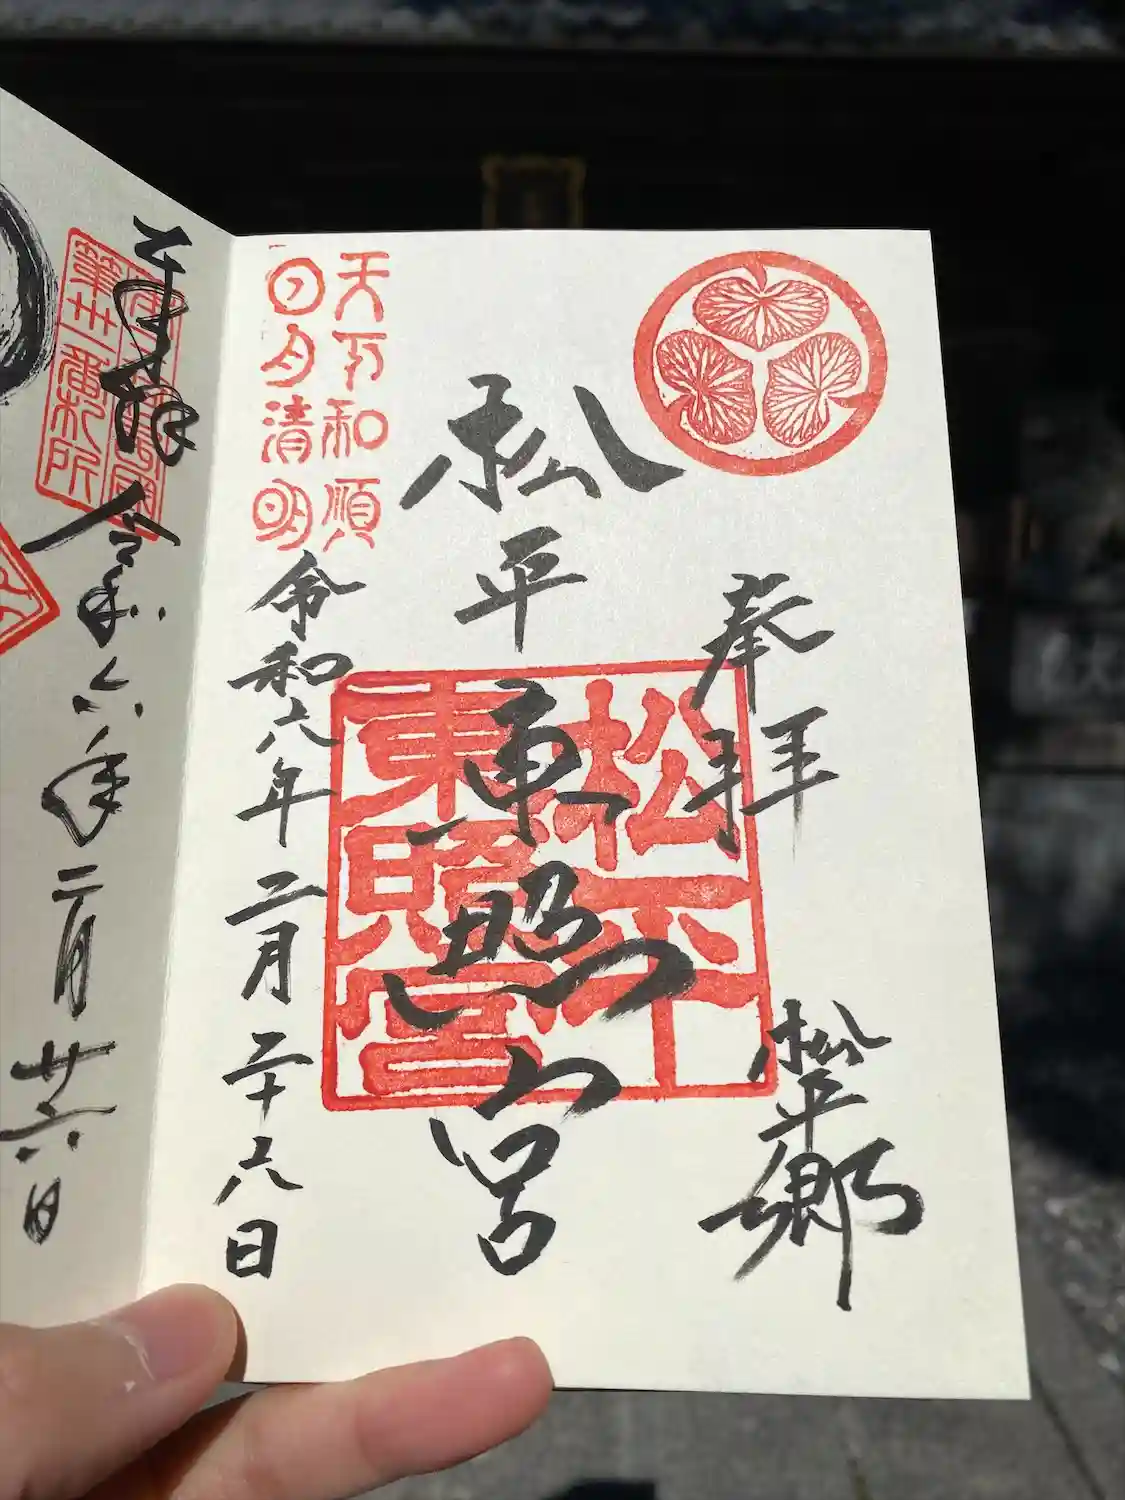 奉拝
松平郷
松平東照宮
松平
東照宮
天下和順
日月清明
令和六年二月二十六日
奉拝
令和六年二月廿六日
第卅一番札所